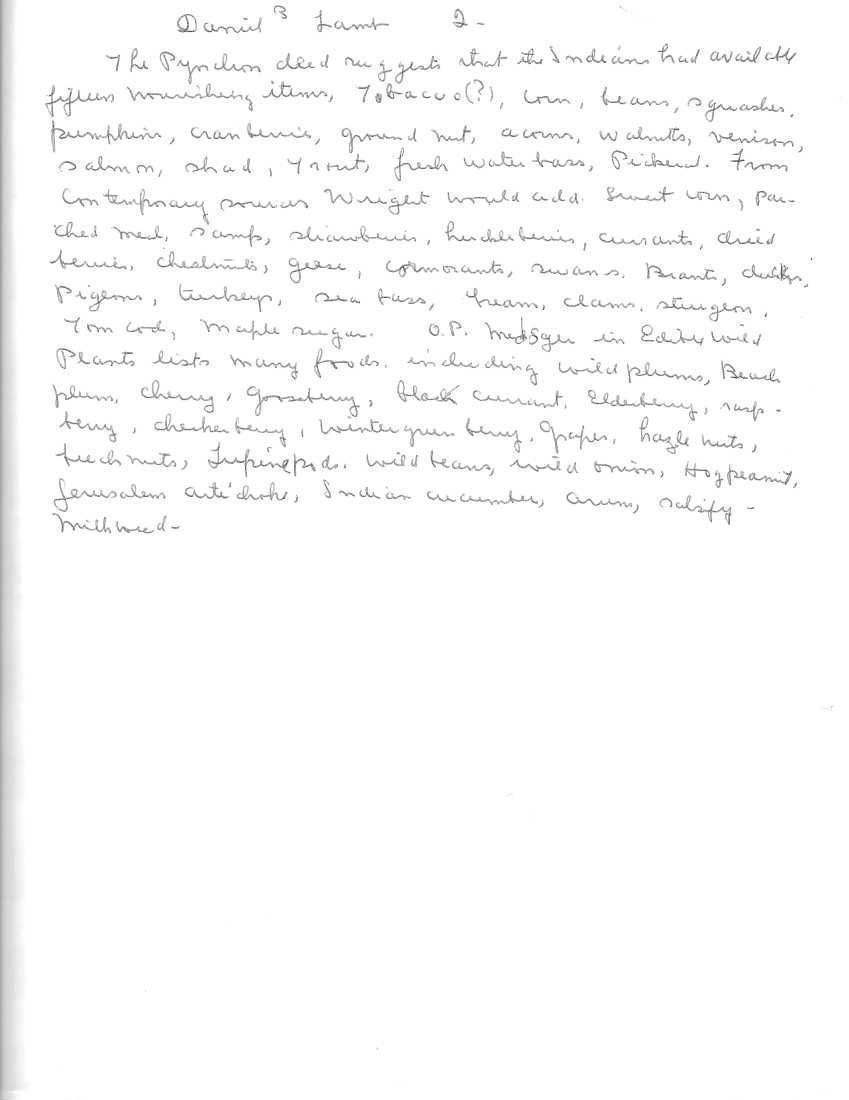 Daniel 3 Lamb 2-
The Pynchon deed suggests that the Indians had available
fifteen nourishing items, Tobacco(?), corn, beans, squashes,
pumpkins, cranberries, ground nut, acorns, walnuts, venison,
salmon, shad, trout, fresh water bass, Pickerel. From
Contemporary sources Wright would add. Sweet corn, par-
ched meal, samp, strawberries, huckleberries, currants, dried
berries, chestnuts, geese, cormorants, swans. Brants, ducks,
Pigeons, turkeys, sea bass, bream, clams, sturgeon,
Tom cod, Maple sugar. O.P. Medsger in Edible Wild
Plants lists many foods. including wild plums, Beach
plum, cherry, gooseberry, black currant, Elderberry, rasp-
berry, checkerberry, Wintergreen berry, Grapes, hazle nuts,
beechnuts, Lupine pods. Wild beans, wild onion, Hog peanut,
Jerusalem artichoke, Indian cucumber, arum, salsify -
Milkweed-